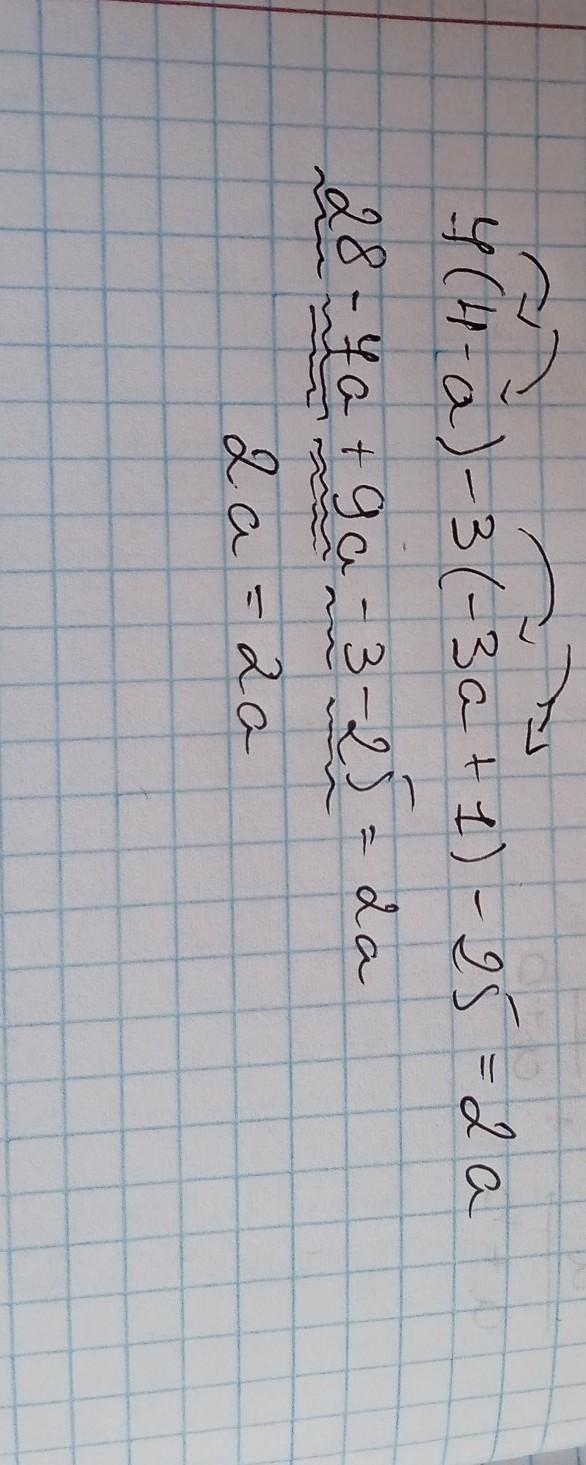 7(4-a)-3(-3a+1)-25=2a
28-7a+9a-3-25=2a
2a=2a